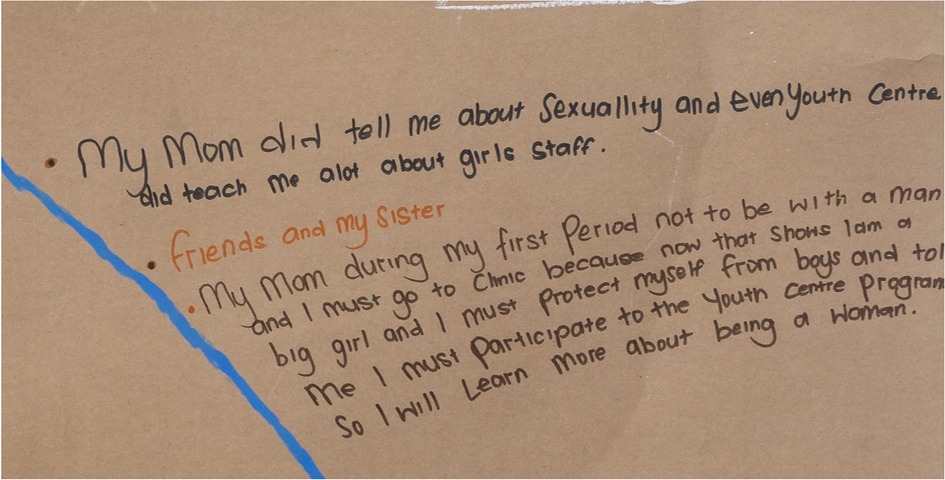 • My Mom did tell me about Sexuallity and even Youth Centre
did teach me alot about girls staff.
• friends and my Sister
• My Mom during my first Period not to be with a man
and I must go to Clinic because now that shows Iam a
big girl and I must Protect myself from boys and tol
me I must Participate to the Youth Centre Program
So I will Learn more about being a Woman.